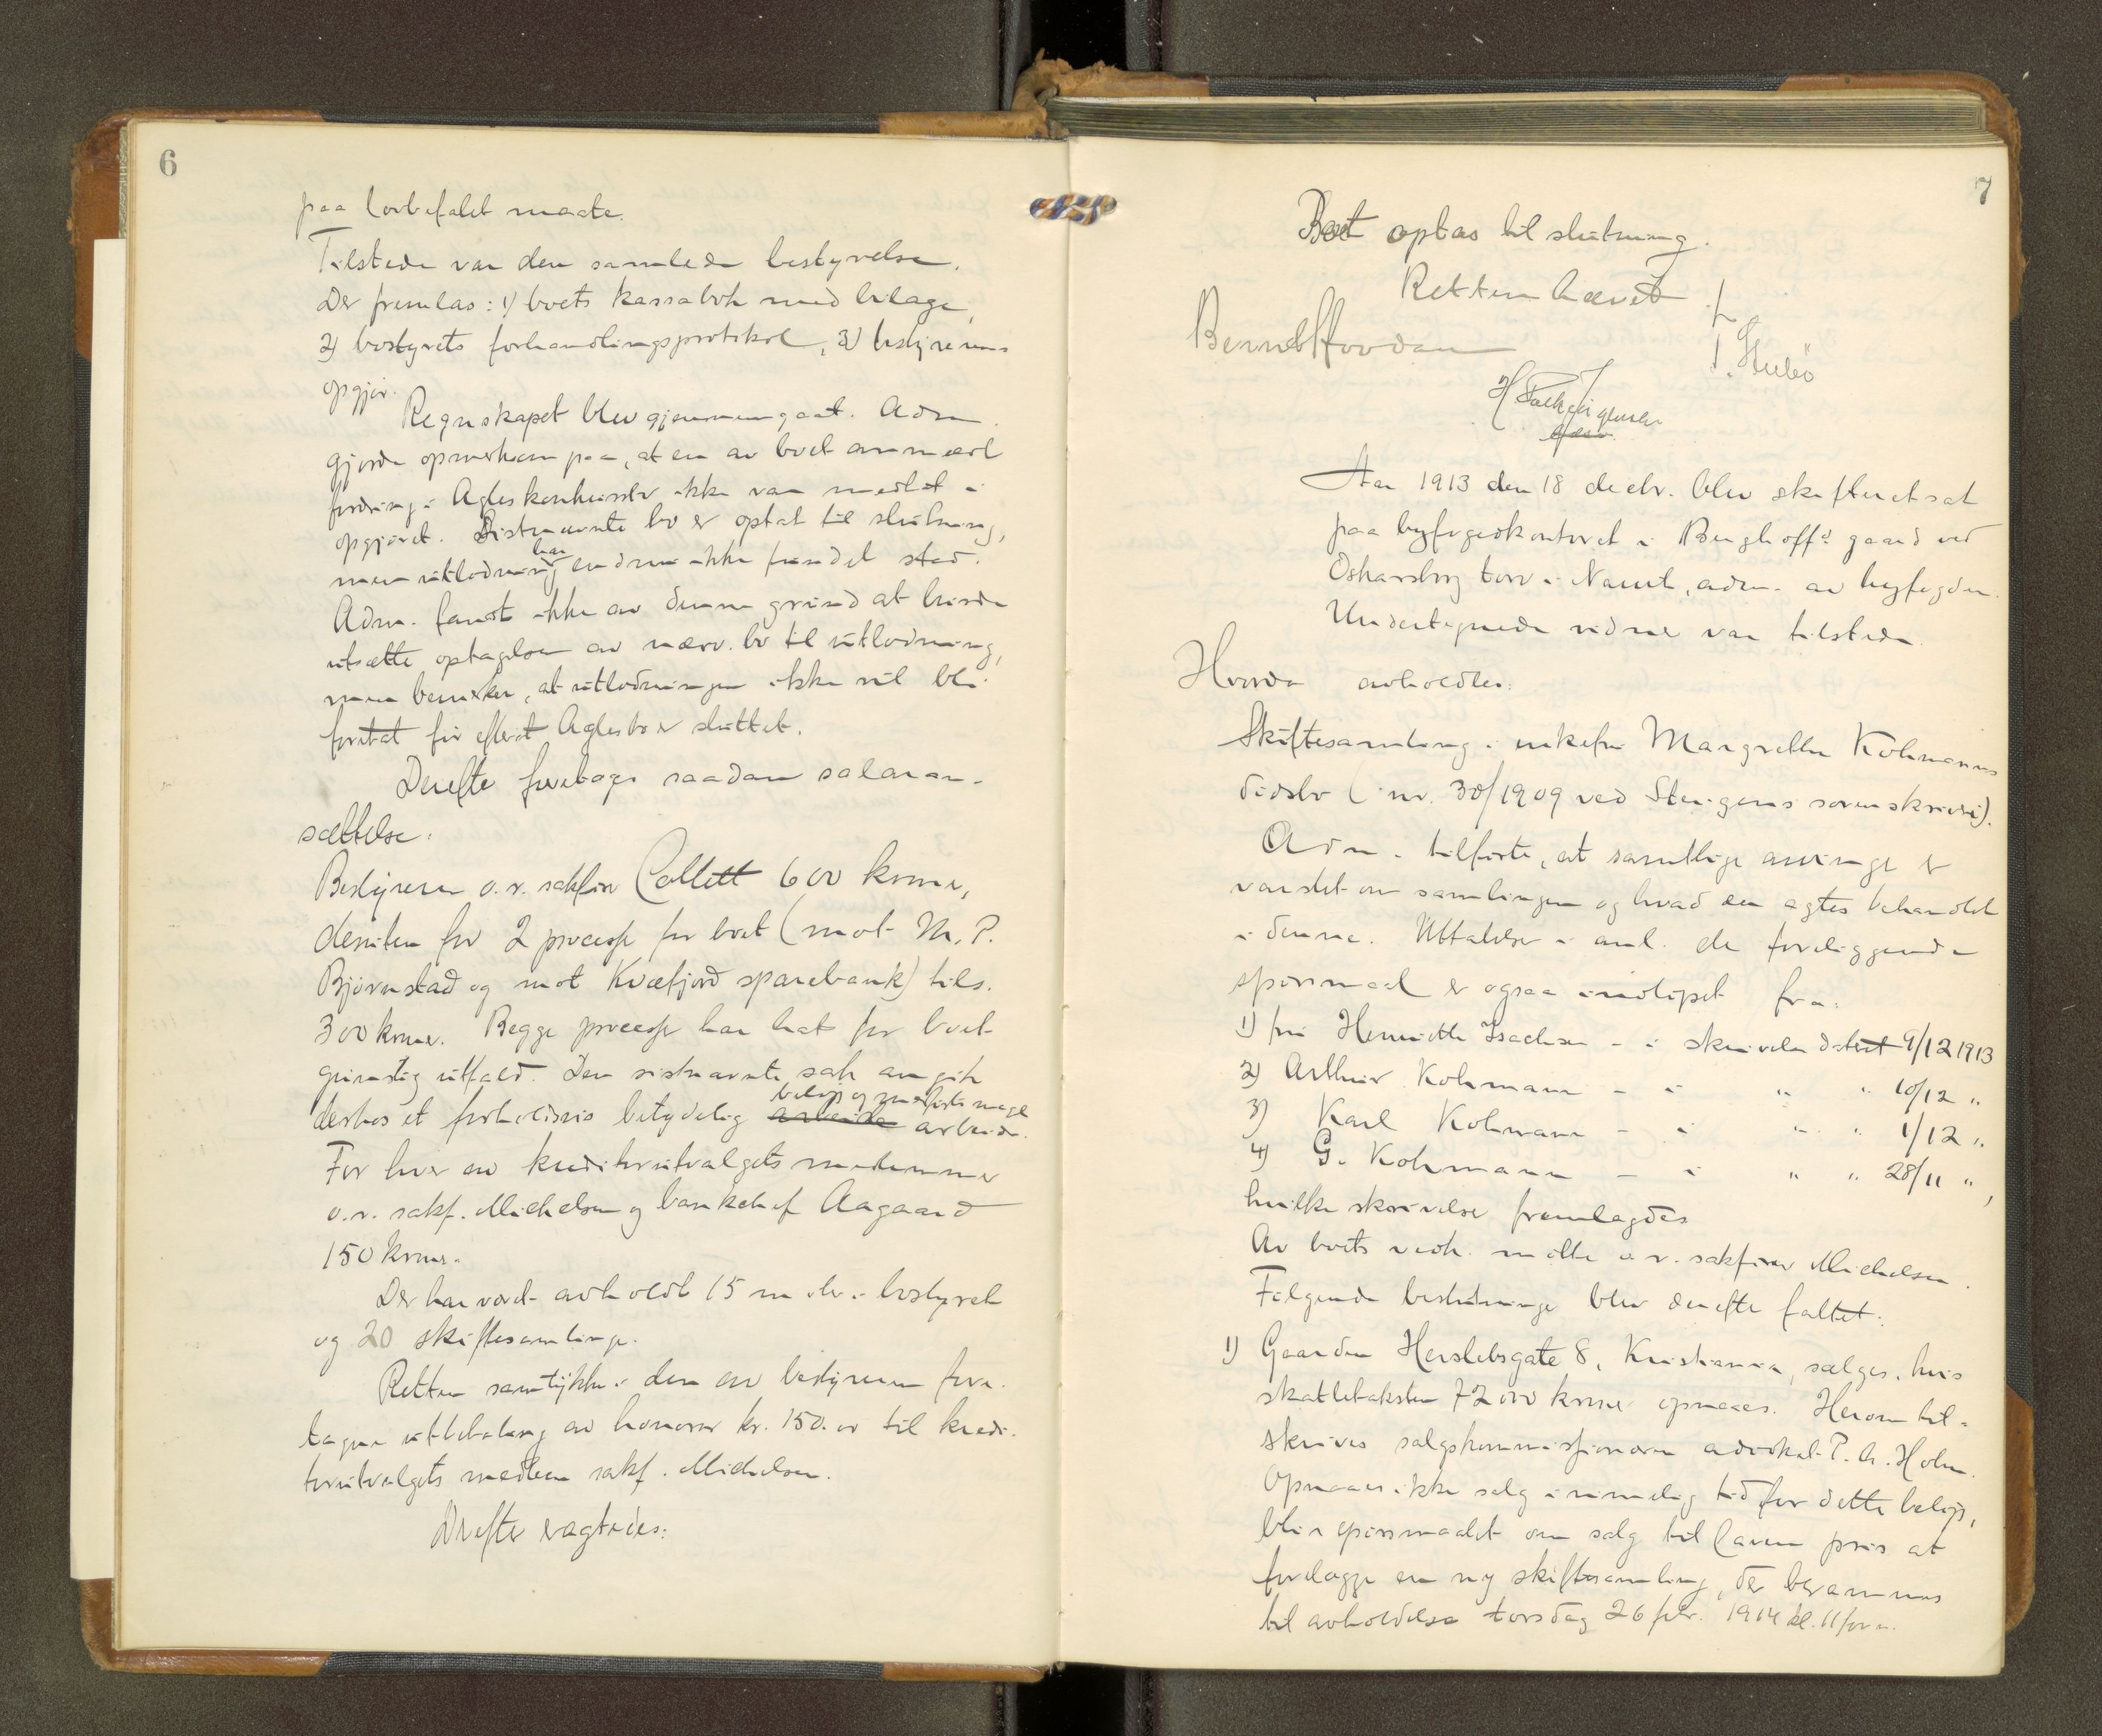 6
paa lovbefalet maate.
Tilstede var den samlede bestyrelse.
Der fremlas: 1) boets kassabok med bilage,
2) bostyrets forhandlingsprotokol, 3) bestyrerens
opgjør.
Regnskapet blev gjennemgaat. Adm.
gjorde opmerksom paa, at en av boet anmeldt
fordring i Agles konkursbo ikke var medtat i
opgjøret. Sistnævnte bo er optat til slutning,
men utlodning har endnu ikke fundet sted.
Adm. fandt ikke av denne grund at burde
utsætte optagelsen av nærv. bo til utlodning,
men bemerker, at utlodningen ikke vil bli
foretat før efterat Aglesbo er sluttet.
Derefter foretages saadan salæran-
sættelse:
Bestyreren o.r. sakfører Collett 600 kroner,
desuten for 2 processer for boet (mot M. P.
Bjørnstad og mot Kvæfjord sparebank) tils.
300 kroner. Begge processer har hat for boet
gunstig utfald. Den sistnævnte sak angik
derhos et forholdsvis betydelig arbeide beløp og medførte meget
arbeide.
For hver av kreditorutvalgets medlemmer
o.r. sakf. Michelsen og bankchef Aagaard
150 kroner.
Der har været avholdt 15 møter i bostyret
og 20 skiftesamlinger.
Retten samtykker i den av bestyreren fore-
tagne utbetaling av honorar kr. 150.00 til kredi-
torutvalgets medlem sakf. Michelsen.
Derefter eragtedes:
7
Boet optas til slutning.
Retten hævet
Aar 1913 den 18 decbr. blev skifteret sat
paa byfogedkontoret i Berghoffs gaard ved
Oskarsborg torv i Narvik, adm. av byfogden.
Undertegnede vidner var tilstede.
Hvorda avholdtes:
Skiftesamling i enkefru Margrethe Kohmanns
dødsbo (nr. 30/1909 ved Steigens sorenskriveri).
Adm. tilførte, at samtlige arvinger er
varslet om samlingen og hvad der agtes behandlet
i denne. Uttalelser i anl. de foreliggende
spørsmaal er ogsaa indløpet fra:
1) fru Henriette Isachsen - i skrivelse datert 9/12 1913
2) Arthur Kohmann - i " " 10/12 "
3) Karl Kohmann - i " " 1/12 "
4) G. Kohmann - i " " 28/11 ",
hvilke skrivelser fremlagdes
Av boets vedk. møtte o.r. sakfører Michelsen.
Følgende beslutninger blev derefter fattet:
1) Gaarden Herslebsgate 8, Kristiania, sælges, hvis
skattetaksten 72000 kroner opnaaes. Herom til-
skrives salgskommissionæren advokat P. A. Holm.
Opnaaes ikke salg i rimelig tid for dette beløp,
blir spørsmaalet om salg til lavere pris at
forelægge en ny skiftesamling, der berammes
til avholdelse torsdag 26 febr. 1914 kl. 11 form.